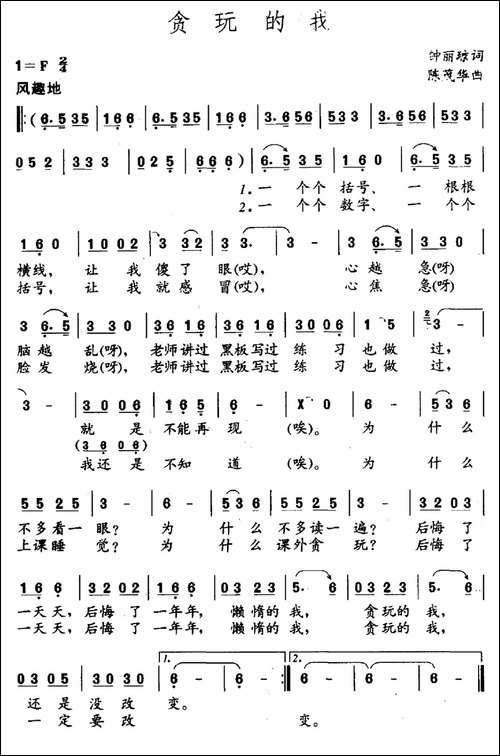 贪玩的我
1=F 2/4
钟丽琼词
陈茂华曲
风趣地
‖:(6·535 | 166 | 6·535 | 166 | 6·5336 | 533 | 3356 | 533 |
052 | 333 | 025 | 666) | 6·535 | 160 | 6·535 |
1.一个个括号、一根根
2.一个个数字、一个个
160 | 1002 | 332 | 33· | 3- | 36·5 | 330 |
横线,让我傻了眼(哎),心越急(呀)
括号,让我就感冒(哎),心焦急(呀)
36·5 | 330 | 3616 | 3616 | 3006 | 15 | 3- |
脑越乱(呀),老师讲过黑板写过练习也做过,
脸发烧(呀),老师讲过黑板写过练习也做过,
3- | 3006 | 165 | 6- | X0 | 6- | 536 |
就是不能再现(唉)。为什么
(3606)
我还是不知道(唉)。为什么
5525 | 3- | 6- | 536 | 5525 | 3- | 3203 |
不多看一眼?为什么不多读一遍?后悔了
上课睡觉?为什么课外贪玩?后悔了
166 | 3202 | 166 | 0323 | 5·6 | 0323 | 5·6 |
一天天,后悔了一年年,懒惰的我,贪玩的我,
一天天,后悔了一年年,懒惰的我,贪玩的我,
1. 2.
0305 | 3053 | 6- | 6- :‖ 6- | 6- | 6- ‖
还是没改变。
一定要改变。